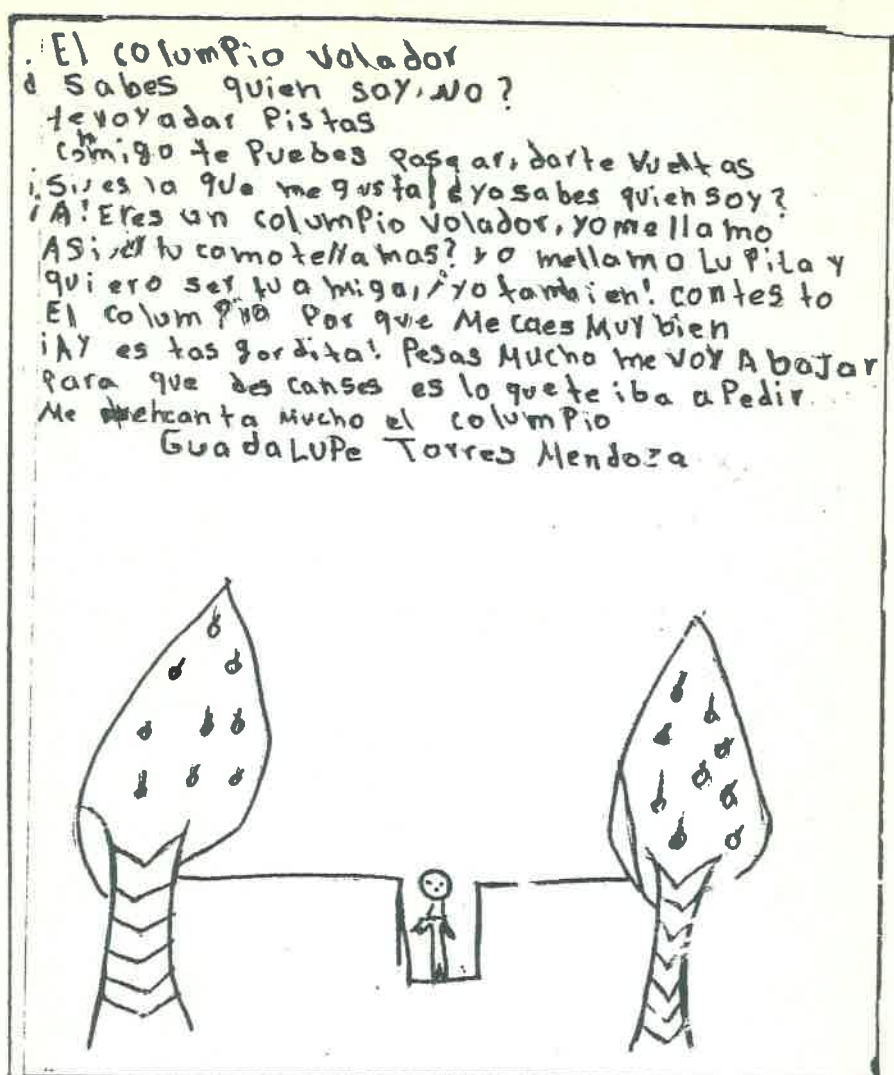 El columpio volador
¿ Sabes quien soy, No?
te voy a dar Pistas
conmigo te Puebes pasear, darte Vueltas
¡Si, es lo que me gusta! ¿yo sabes quien soy?
¡A! Eres un columpio volador, yo me llamo
ASi, ¿y tu como te llamas? yo me llamo Lupita y
quiero ser tu amiga, ¡yo tambien! contesto
El columpio Por que Me caes Muy bien
¡AY estas gordita! Pesas Mucho me voy A bajar
Para que descanses es lo que te iba a Pedir
Me encanta Mucho el columpio
Guadalupe Torres Mendoza